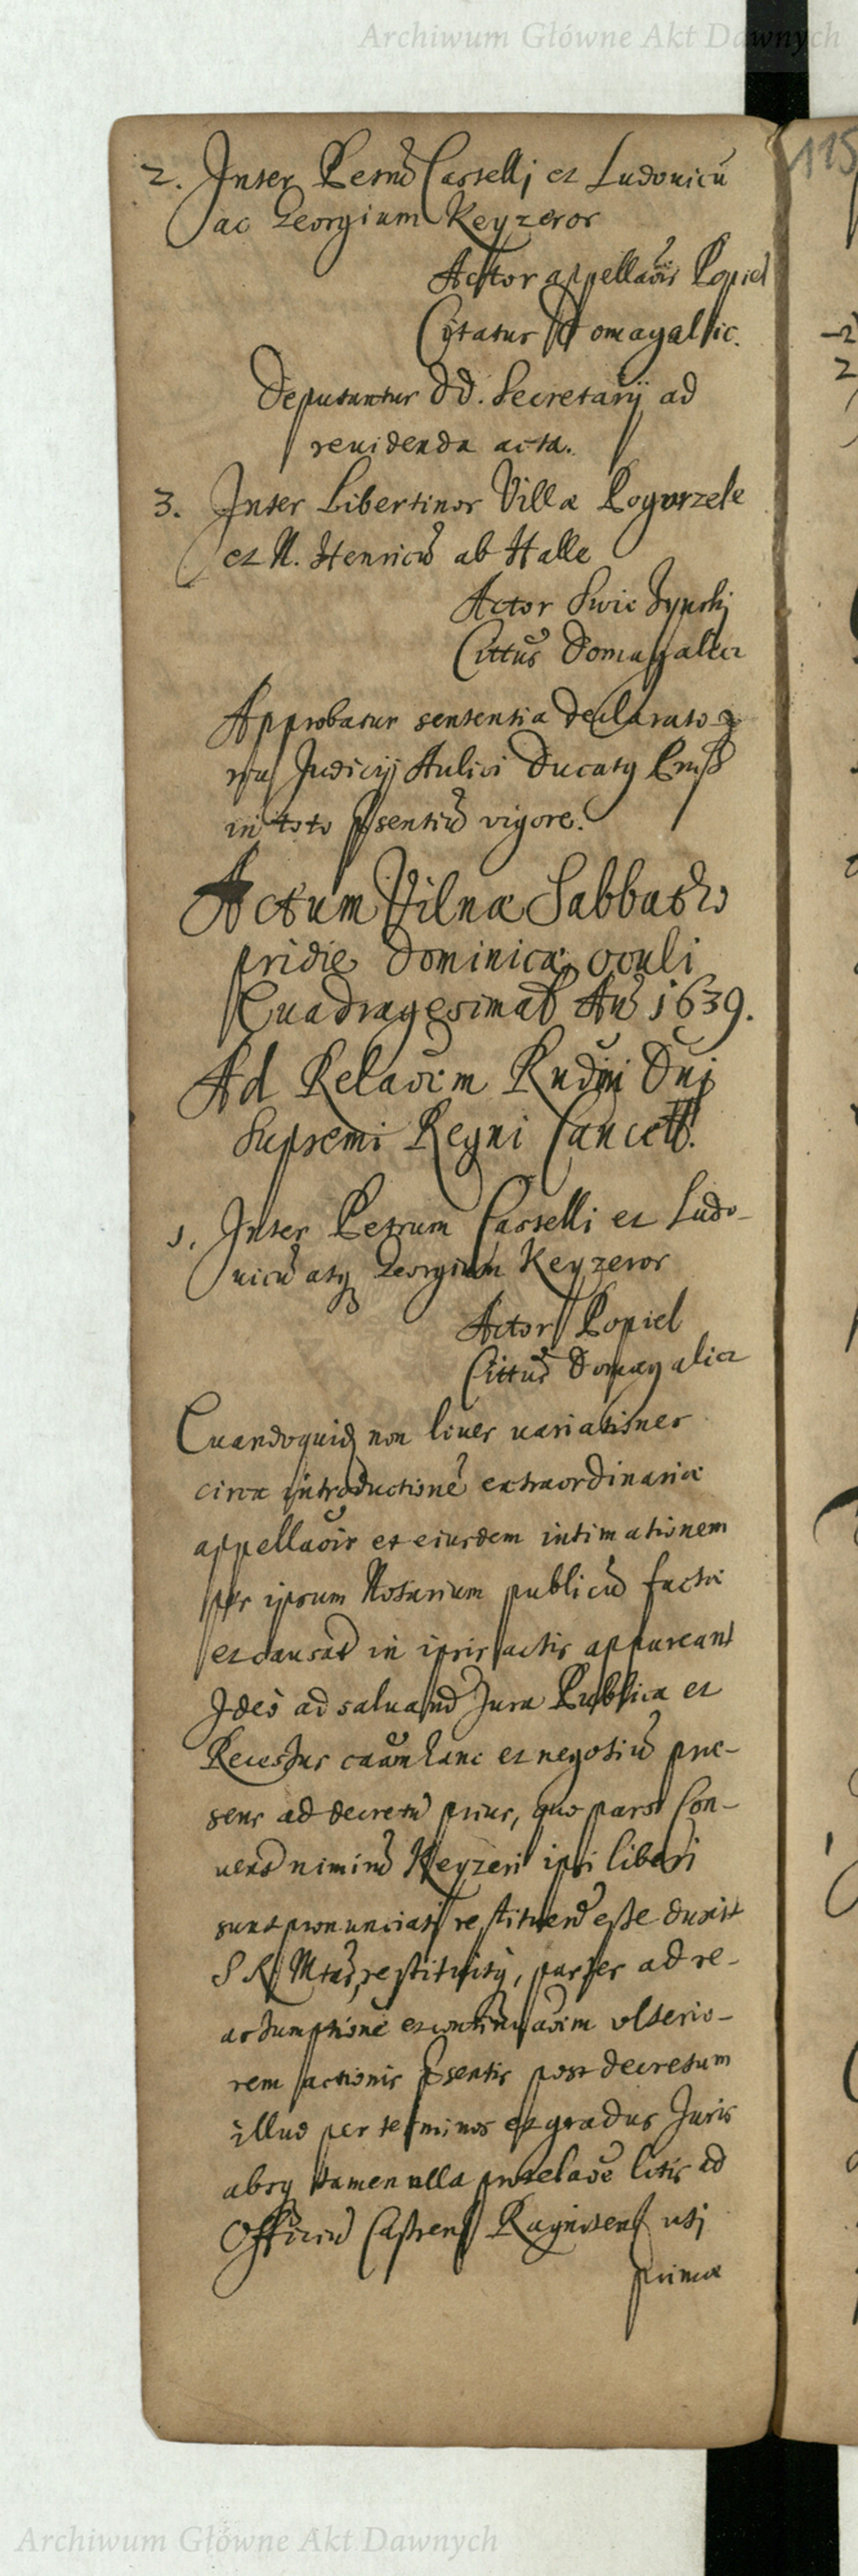 Archiwum Główne Akt Dawnych
115
2. Inter Petrũ Casselli et Ludovicũ
ac Georgium Keyzeros
Actor appellaõis Popiel
Cytatus Domagalic.
Deputantur DD. Secretarij ad
revidenda acta.
3. Inter Libertinos Villæ Pogorzele
et N. Henricũ ab Halle
Actor Swiezynski
Cittũs Domagalicz
Approbatur sententia declarato-
ria Judicij Aulici Ducatq Pruss
in toto p̃sentiũ vigore.
Actum Vilnæ Sabbatho
pridie Dominicæ oculi
Quadragesimal Aõ 1639.
Ad Relaõem Rndmi Dnj
Supremi Regni Cancell.
1. Inter Petrum Casselli et Ludo-
vicũ atq Georgium Keyzeros
Actor Popiel
Cittũs Domagalicz
Quandoquid non leves variationes
circa introductionẽ extraordinariæ
appellaõis et eiusdem intimationem
per ipsum Notarium publicũ factæ
et causat in ipsis actis appareant
Ideo ad salvand Jura Publica et
Recessus caũam hanc et negotiũ præ-
sens ad decretũ prius, quo pars Con-
vent nimirũ Keyzeri ipsi liberi
sunt pronunciati restituend esse duxit
S R Mtas, restituitq, partes ad re-
assumptionẽ et continuaõem ulterio-
rem actionis p̃sentis post decretum
illud per terminos et gradus Juris
absq tamen ulla protelaõe litis ad
Officiũ Castrens Ragnitens uti
primæ
Archiwum Główne Akt Dawnych